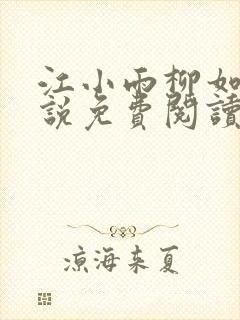 江小雨柳如
說免費閱讀
涼海来夏